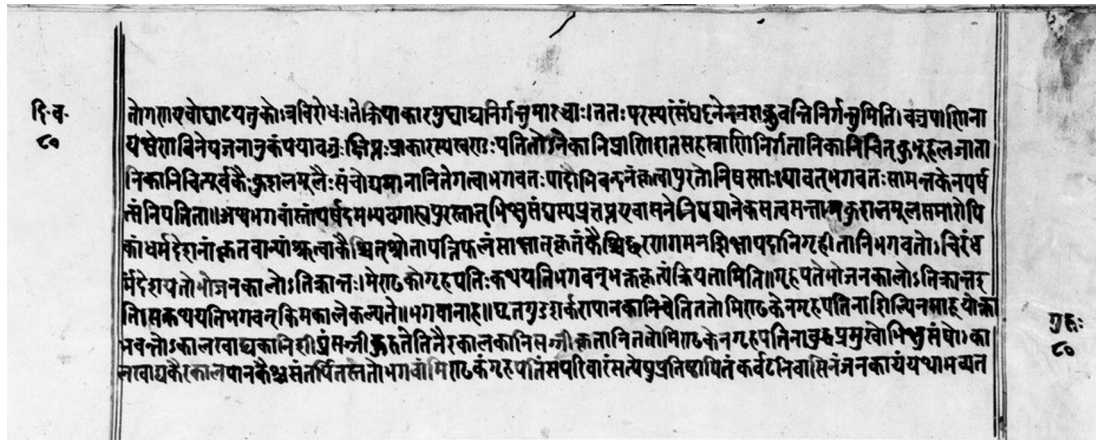 दि॰व॰
८०
तोगणएवोद्घाटयतुकोऽत्रविरोधः।तेक्रियाकारमुद्घाट्यनिर्गन्तुमारब्धाः।ततःपरस्परंसंघट्टनेननशक्नुवन्तिनिर्गन्तुमिति।वज्रपाणिना
यक्षेणविनेयजनानुकंपयावज्रःक्षिप्तःप्राकारस्यखण्डःपतितोऽनेकानिप्राणिशतसहस्राणिनिर्गतानिकानिचित्कुतूहलजाता
निकानिचित्पूर्वकैःकुशलमूलैःसंचोद्यमानानितेगत्वाभगवतःपादाभिवन्दनंकृत्वापुरतोनिषण्णाःयावत्भगवतःसामन्तकेनपर्ष
त्संनिपतिता॥अथभगवांस्तांपर्षदमभ्यवगाह्यपुरस्तात्भिक्षुसंघस्यप्रज्ञप्तएवासनेनिषद्यानेकसत्वसन्तानकुशलमूलसमारोपि
कांधर्मदेशनांकृतवान्यांश्रुत्वाकैश्चित्श्रोतापत्तिफलंसाक्षात्कृतंकैश्चिद्धरणगमनशिक्षापदानिगृहीतानिभगवतोऽचिरंध
र्मंदेशयतोभोजनकालोऽतिक्रान्तः।मेण्ढकोगृहपतिःकथयतिभगवन्भक्तकृत्यंक्रियतामिति॥गृहपतेभोजनकालोऽतिक्रान्तइ
तिसकथयतिभगवन्किमकालेकल्पते॥भगवानाह॥घृतगुडशर्करापानकानिचेतिततोमेण्ढकेनगृहपतिनाशिल्पिनआहूयोक्ता
भवन्तोऽकालखाद्यकानिशीघ्रंसज्जीकुरुतेतितैरकालकानिसज्जीकृतानिततोमेण्ढकेनगृहपतिनाबुद्धप्रमुखोभिक्षुसंघोऽका
लखाद्यकैरकालपानकैश्चसंतर्पितस्ततोभगवांमेण्ढकंगृहपतिंसपरिवारंसत्येषुप्रतिष्ठापितंकर्वटनिवासिनंजनकायंयथाभव्यत
गुरुः
८०